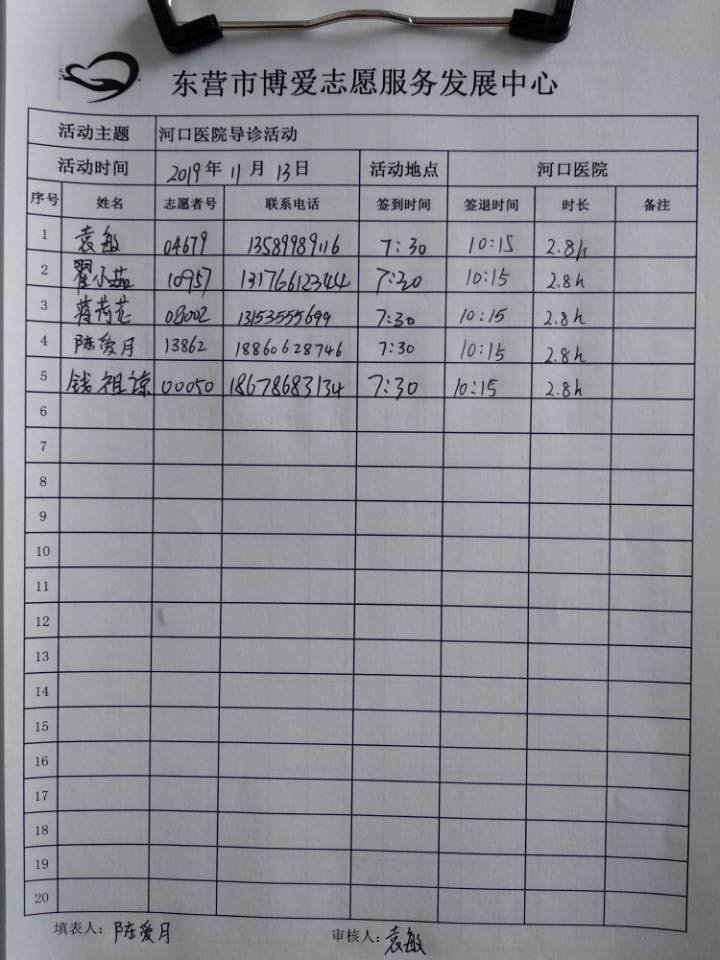 东营市博爱志愿服务发展中心
活动主题 河口医院导诊活动
活动时间 2019年11月13日 活动地点 河口医院
序号 姓名 志愿者号 联系电话 签到时间 签退时间 时长 备注
1 袁敏 04679 13589989116 7:30 10:15 2.8h
2 翟小茹 10957 13176612344 7:30 10:15 2.8h
3 蒋荷花 08002 13153555699 7:30 10:15 2.8h
4 陈爱月 13862 18860628746 7:30 10:15 2.8h
5 钱祖谅 00050 18678683134 7:30 10:15 2.8h
6
7
8
9
10
11
12
13
14
15
16
17
18
19
20
填表人：陈爱月 审核人：袁敏